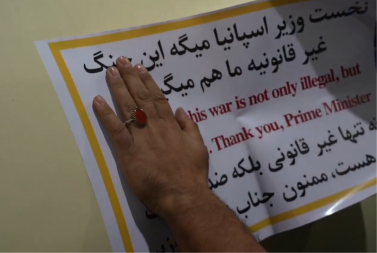 نخست وزیر اسپانیا میگه این جنگ
غیر قانونیه ما هم میگیم
his war is not only illegal, but
. Thank you, Prime Minister
نه تنها غیر قانونی بلکه
هست، ممنون جناب